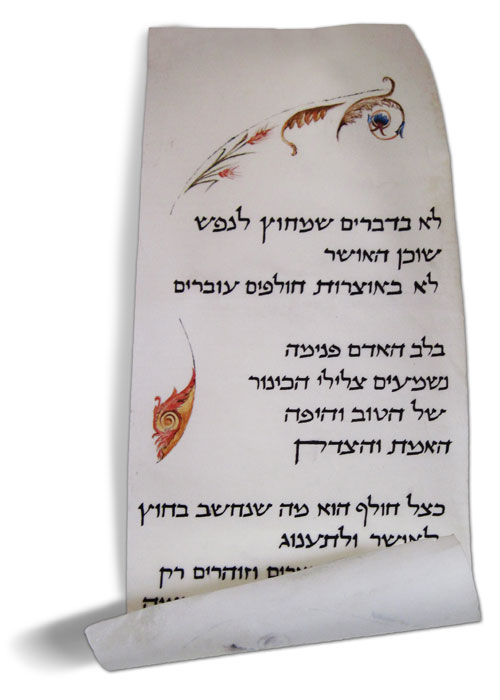 לא בדברים שמחוץ לנפש
שוכן האושר
לא באוצרות חולפים עוברים
בלב האדם פנימה
נשמעים צלילי הכינור
של הטוב והיפה
האמת והצדק
כצל חולף הוא מה שנחשב בחוץ
לאושר ולתענוג
וזוהרים רק